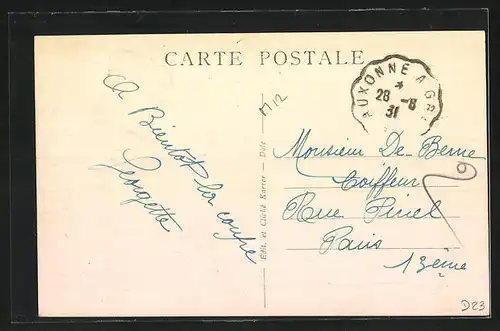 CARTE POSTALE
A Bientôt la coupe
Georgette
M12
Edit. et Cliché Karrer - Dole
AUXONNE A GR
28 -8
31
Monsieur De Berne
Coiffeur
Rue Pinel
Paris
13ème
9
D23